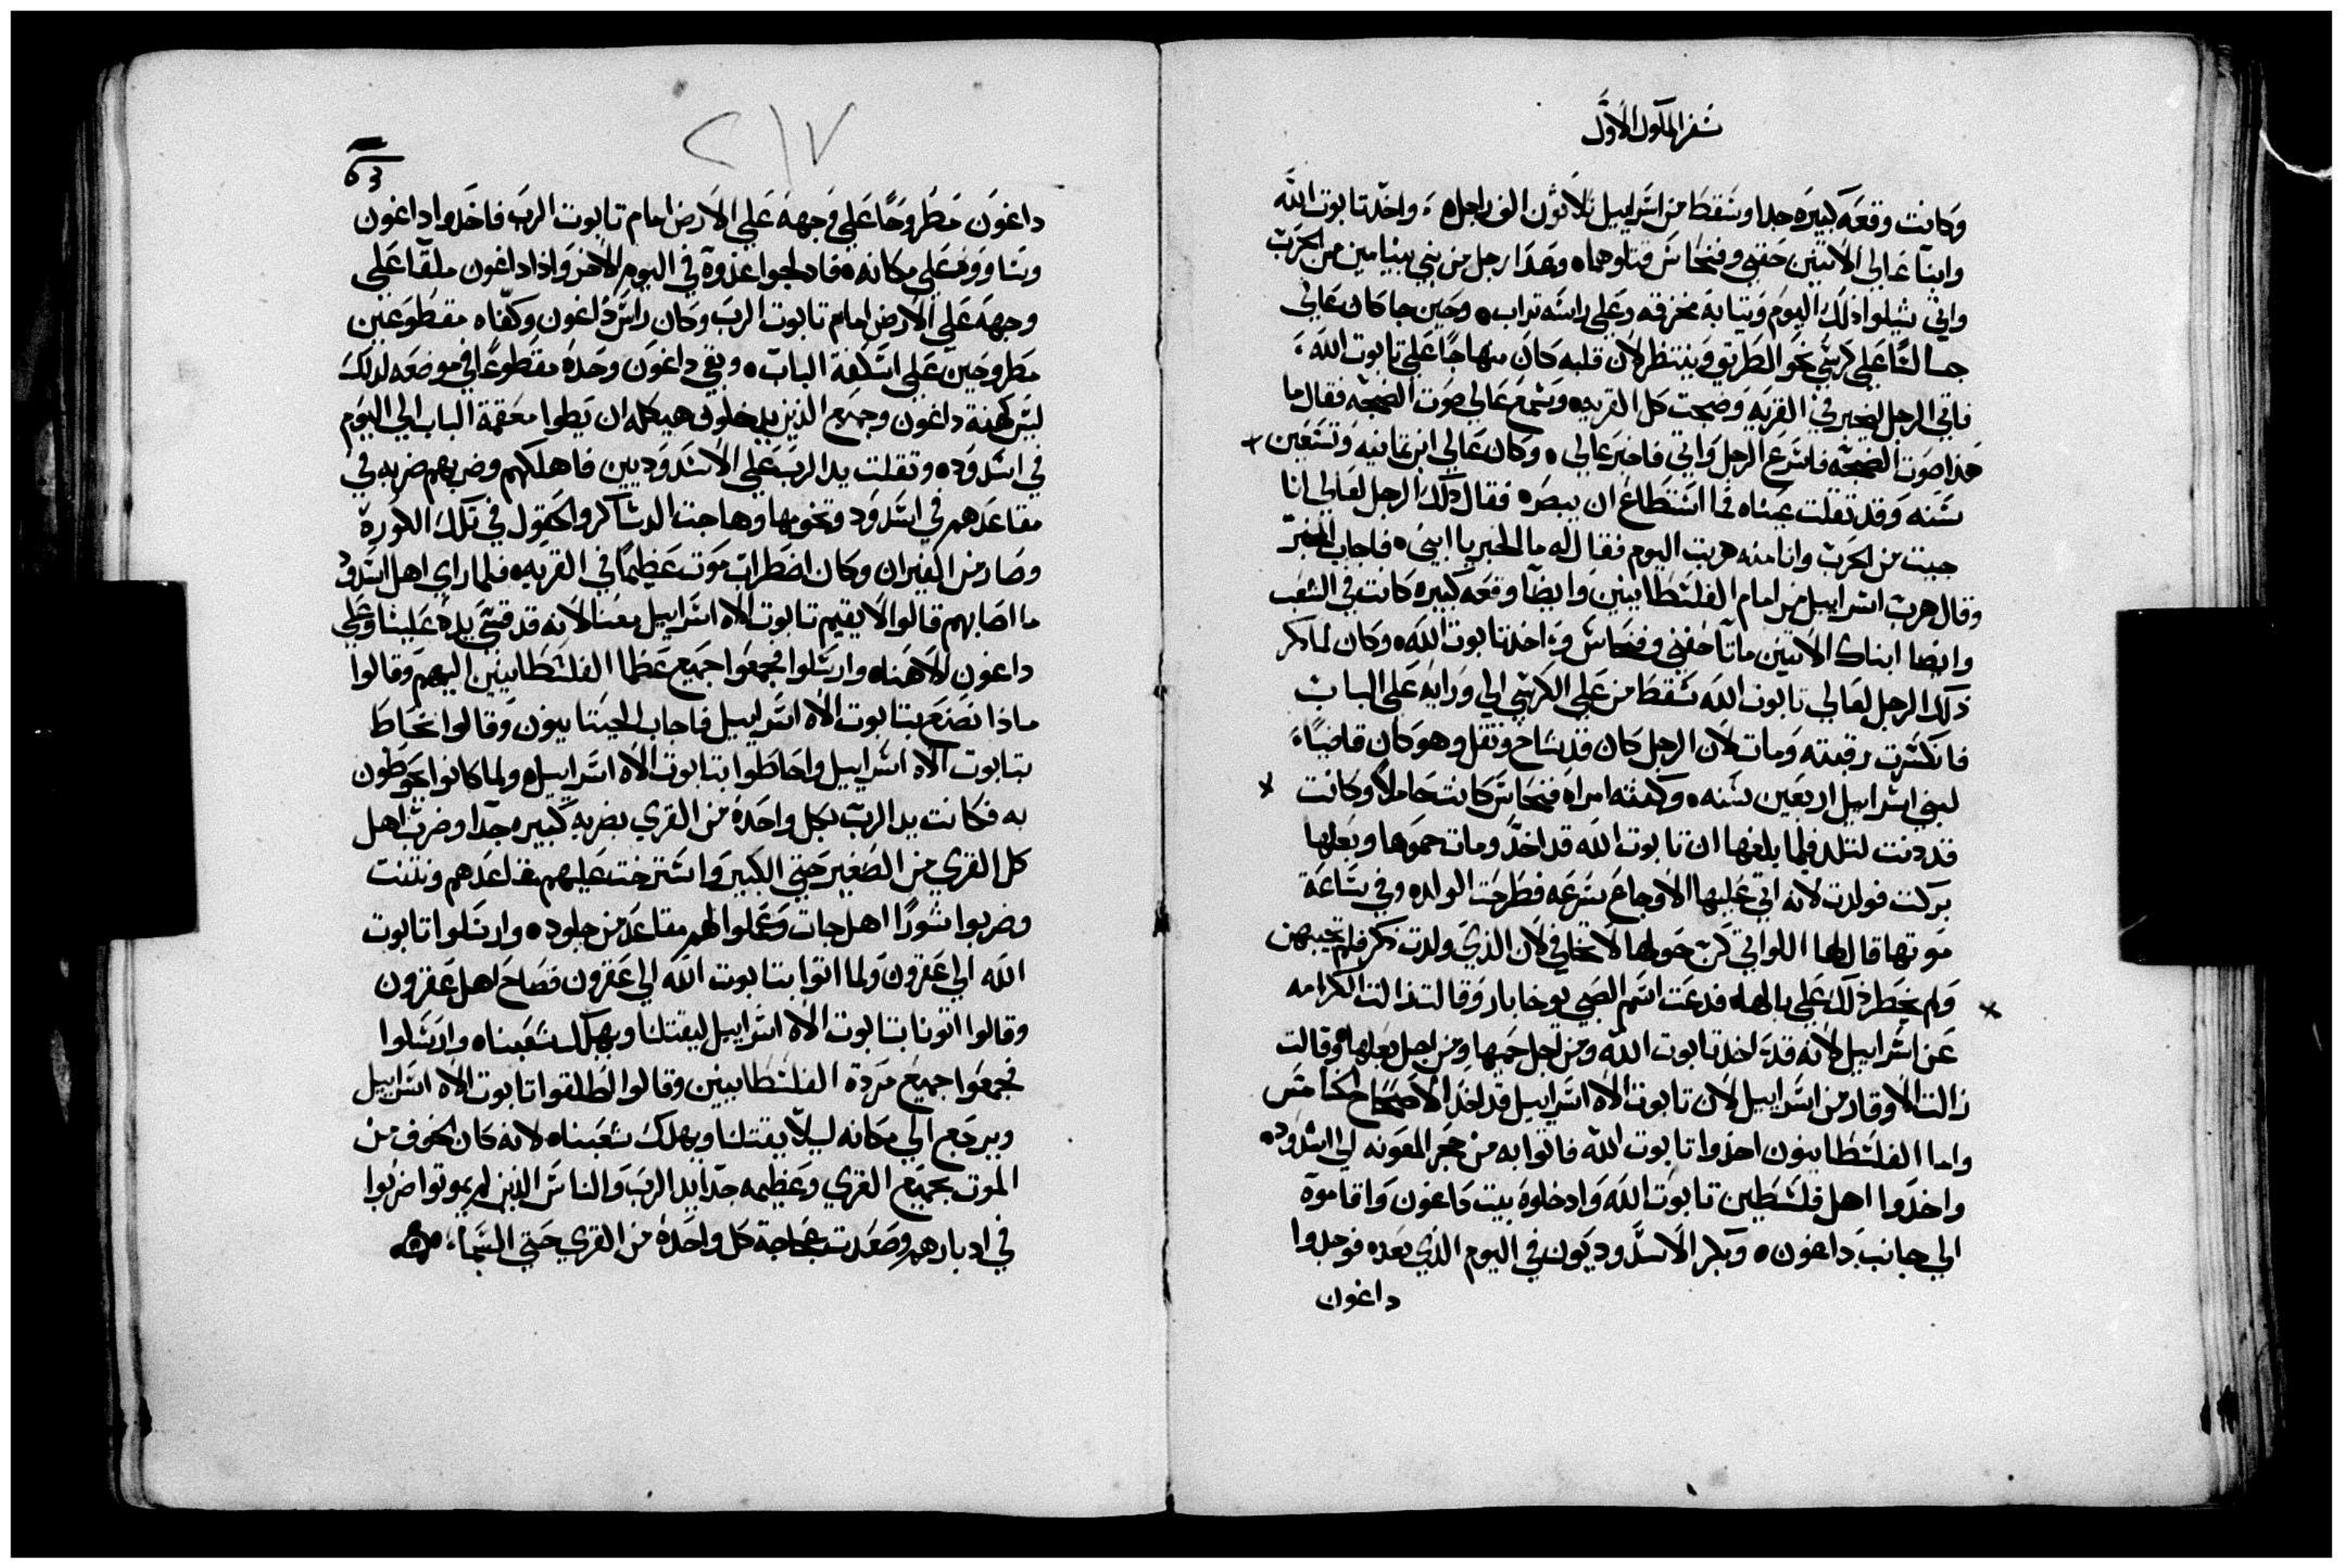 سفر الملوك الاول
وكانت وقعه كبيره جدا وسقط من اسراييل ثلاثون الف راجل واخد تابوت الله
وابنا عالي الاتنين حفني وفنحاس قتلوهما وعدا رجل من بني بنيامين من الحرب
واتي شيلوا ذلك اليوم وتيابه مخزقه وعلي راسه تراب وحين جا كان عالي
جسالسًا علي كرسي نحو الطريق وينتظر لان قلبه كان منهاجًا علي تابوت الله
فاتي الرجل ليخبر في القريه وضجت كل القريه وسمع عالي صوت الضجه فقال ما
هدا صوت الضجه فاسرع الرجل واتي فاخبر عالي وكان عالي ابن تمانيه وتسعين
سنه وقد تقلت عيناه فما استطاع ان يبصره فقال دلك الرجل لعالي انا
جيت من الحرب وانا منه هربت اليوم فقال له ما الخبر يا ابني فاجاب المخبر
وقال هرب اسراييل من امام الفلسطايين وايضا وقعه كبيره كانت في الشعب
وايضا ابناك الاتنين ماتا حفني وفنحاس وقد اخد تابوت الله وكان لما دكر
ذلك الرجل لعالي تابوت الله سقط من علي الكرسي الي ورايه علي الباب
فانكسرت رقبته ومات لان الرجل كان قد شاخ وتقل وهو كان قاضيًا
لبني اسراييل اربعين سنه وكنته امراه فنحاس كانت حاملاً وكانت
قد دنت لتلد فلما بلغها ان تابوت الله قد اخد ومات حموها وبعلها
بركت فولدت لانه اتي عليها الاوجاع بسرعه فطرحت الولد وفي ساعة
موتها قال لها اللواتي كن حولها لا تخافي لان الذي ولدت دكر فلم تجيبهن
ولم يخطر ذلك علي بالها فدعت اسم الصبي يوخابار وقالت زالت الكرامه
عن اسراييل لانه قد اخد تابوت الله ومن اجل حميها ومن اجل بعلها وقالت
زالت الاوقار من اسراييل لان تابوت الاه اسراييل قد اخد الاصحاح الخامس
واما الفلسطايينون اخدوا تابوت الله فاتوا به من حجر المعونه الي اشدود
واخدوا اهل فلسطين تابوت الله وادخلوه بيت داغون واقاموه
الي جانب داغون وبكر الاسدوديون في اليوم الذي بعده فوجدوا
داغون
٢١٧
داغون مطروحًا علي وجهه علي الارض امام تابوت الرب فاخدوا داغون
علي مكانه فادلجوا غدوة في اليوم الاخر واذا داغون ملقا علي
وجهه علي الارض امام تابوت الرب وكان راس داغون وكفاه مقطوعين
مطروحين علي اسكفة الباب وبقي داغون وحده مقطوعًا في موضعه لدلك
ليس كهنة داغون وجميع الذين يدخلون هيكله ان يطوا معقمة الباب الي اليوم
في اشدود وتقلت يد الرب علي الاشدوديين فاهلكهم وضربهم ضربه في
مقاعدهم في اشدود وتخومها وهاجت الدساكر والحقول في تلك الكورة
وصار من الفيران وكان اضطراب موت عظيمًا في القريه فلما راي اهل اشدود
ما اصابهم قالوا لا يقيم تابوت الاه اسراييل معنا لانه قد قسي يده علينا وعلي
داغون الاهناه وارسلوا فجمعوا جميع عظما الفلسطايين اليهم وقالوا
ماذا نصنع بتابوت الاه اسراييل فاجاب الجيتاييون وقالوا نحاط
بتابوت الاه اسراييل واحاطوا بتابوت الاه اسراييل ولما كانوا يحوطون
به فكانت يد الرب بكل واحدة من القري بضربه كبيره جدا وضرب اهل
كل القري من الصغير حتي الكبير واسترخت عليهم مقاعدهم ونتنت
وضربوا شورًا اهل جات وعملوا لهم مقاعد من جلود وارسلوا تابوت
الله الي عقرون ولما اتوا بتابوت الله الي عقرون فصاح اهل عقرون
وقالوا اتونا بتابوت الاه اسراييل ليقتلنا ويهلك شعبناه وارسلوا
فجمعوا جميع مردة الفلسطايين وقالوا اطلقوا تابوت الاه اسراييل
ويرجع الي مكانه ليلا يقتلنا ويهلك شعبناه لانه كان الخوف من
الموت بجميع القري وعظيمه جدا يد الرب والناس الذين لم يموتوا ضربوا
في ادبارهم وصعدت عجاجة كل واحدة من القري حتي السماء